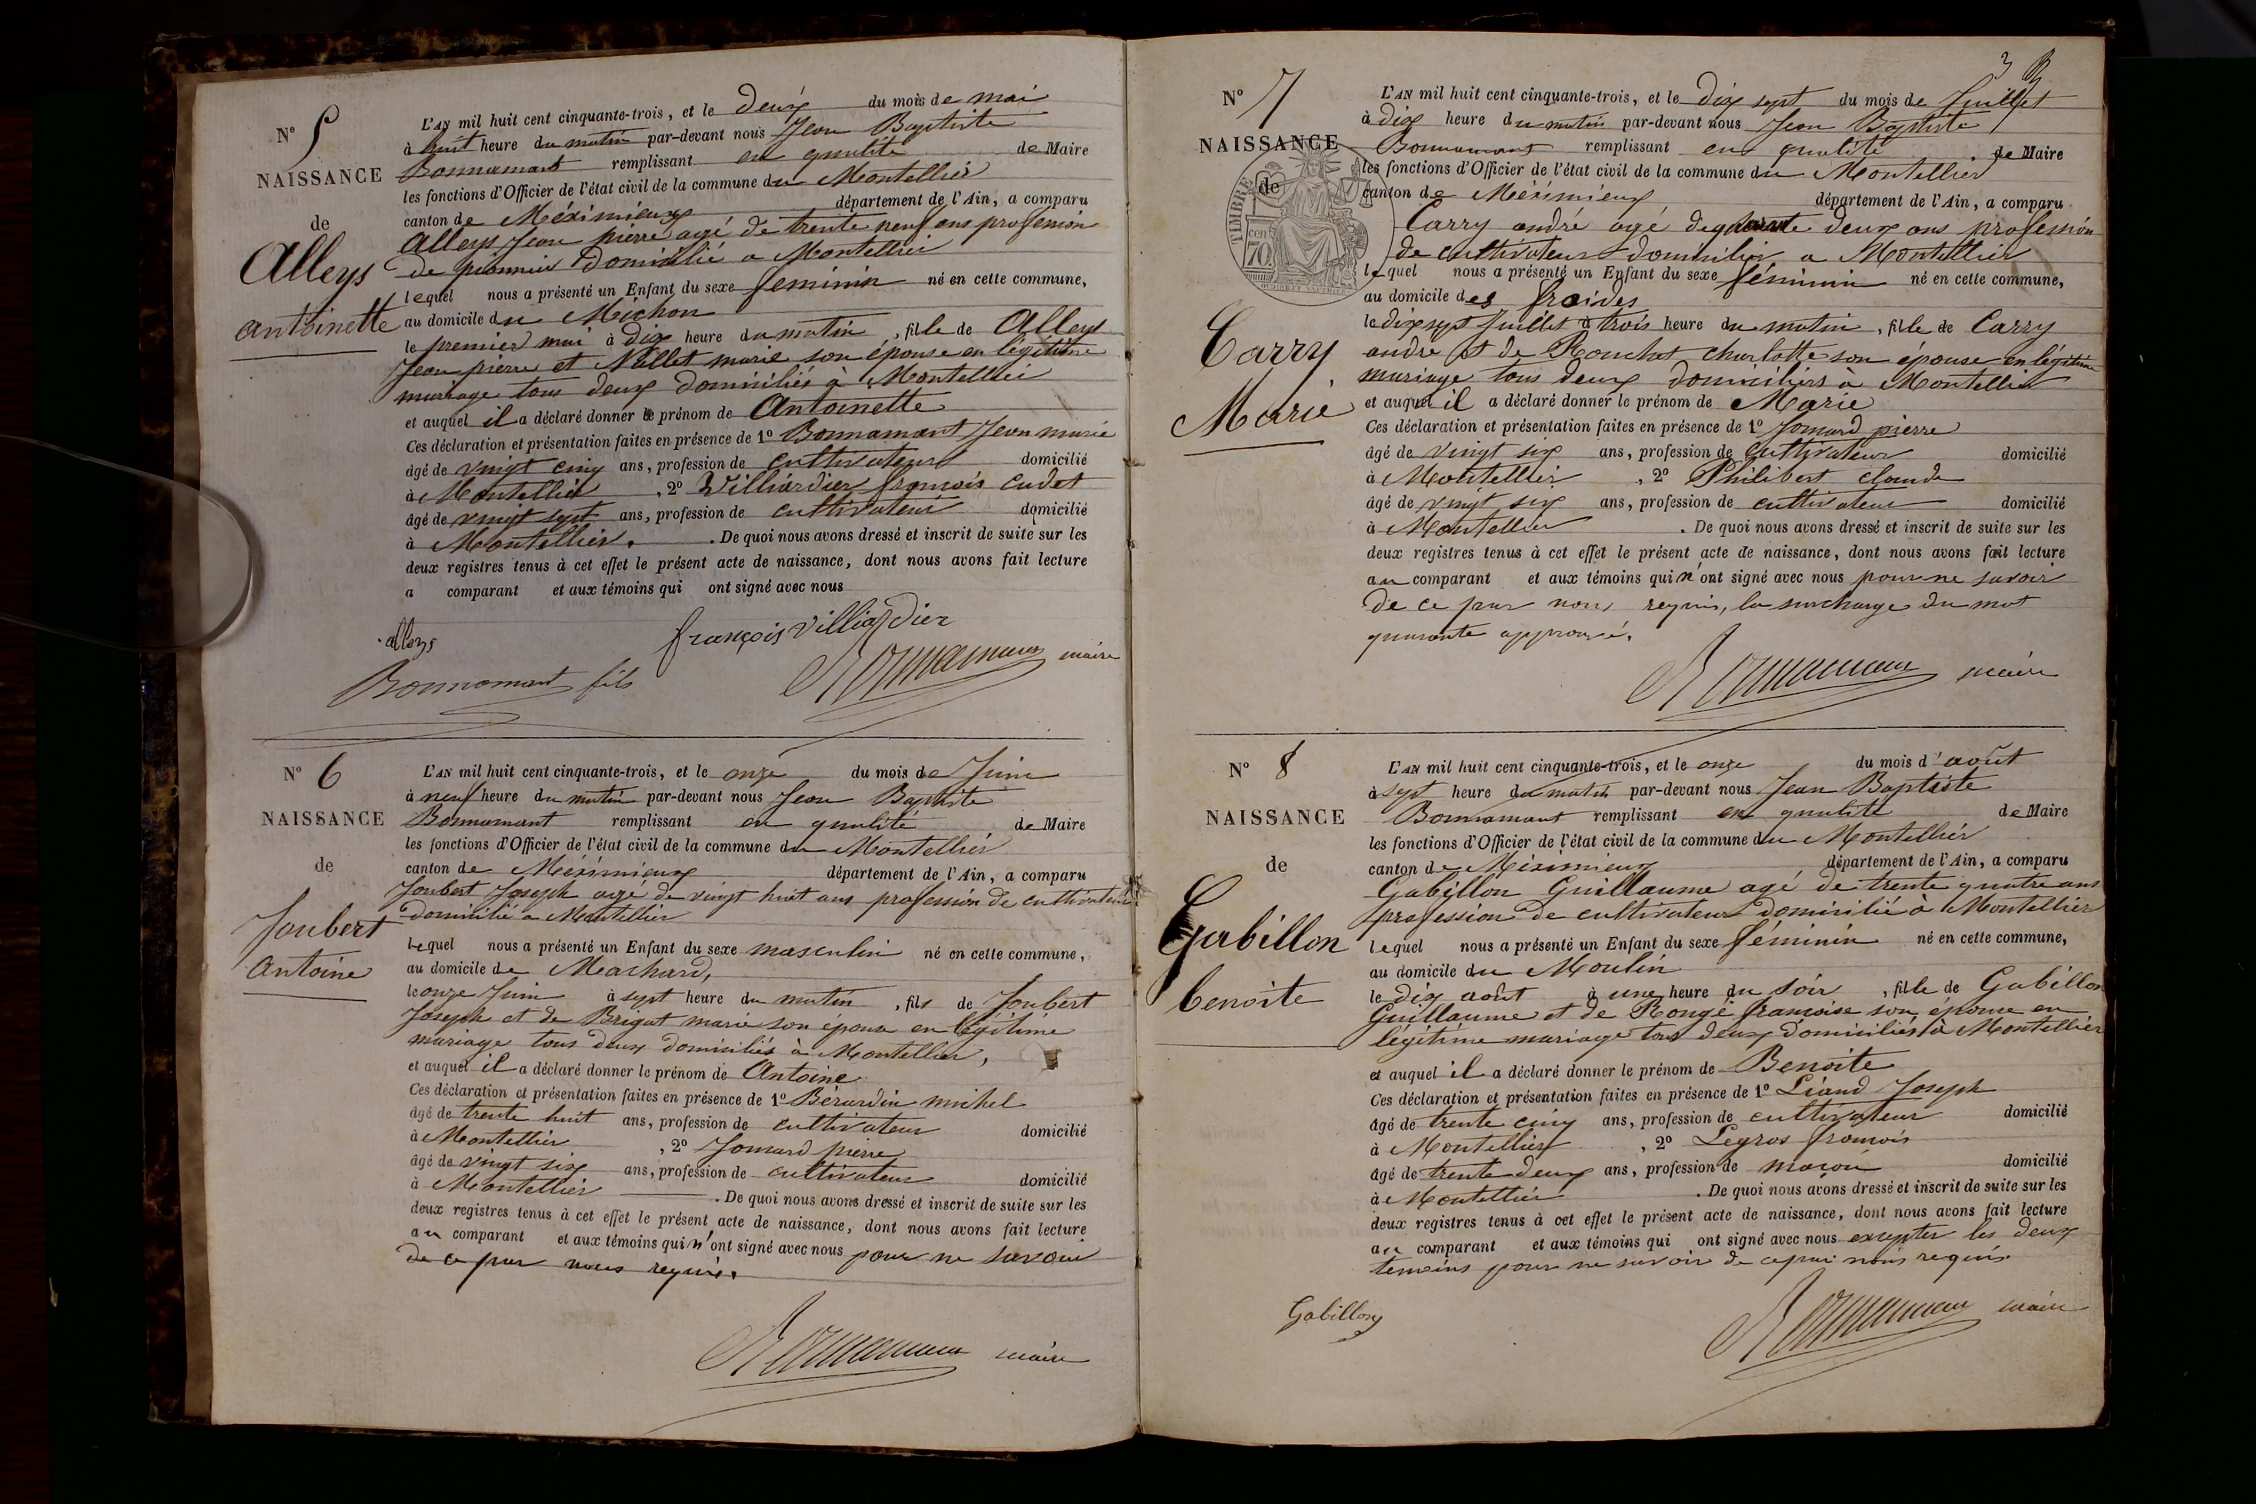 N° 5
NAISSANCE
de
Alleys
antoinette
L'AN mil huit cent cinquante-trois, et le deux du mois de mai
à huit heure du matin par-devant nous Jean Baptiste
Bonnamant remplissant en qualité de Maire
les fonctions d'Officier de l'état civil de la commune du Montellier
canton de Méximieux département de l'Ain, a comparu
Alleys Jean pierre agé de trente neuf ans profession
de pionnier Domicilié a Montellier
lequel nous a présenté un Enfant du sexe feminin né en cette commune,
au domicile du Michon
le premier mai à dix heure du matin, fille de Alleys
Jean pierre et Nallet marie son épouse en légitime
mariage tous deux domiciliés à Montellier
et auquel il a déclaré donner le prénom de Antoinette
Ces déclaration et présentation faites en présence de 1° Bonnamant Jean marie
âgé de vingt cinq ans, profession de cultivateur domicilié
à Montellier, 2° Villiardier françois cadet
âgé de vingt sept ans, profession de cultivateur domicilié
à Montellier. De quoi nous avons dressé et inscrit de suite sur les
deux registres tenus à cet effet le présent acte de naissance, dont nous avons fait lecture
a comparant et aux témoins qui ont signé avec nous
alleys françois villiardier
Bonnamant fils Bonnamant maire
N° 6
NAISSANCE
de
Joubert
Antoine
L'AN mil huit cent cinquante-trois, et le onze du mois de Juin
à neuf heure du matin par-devant nous Jean Baptiste
Bonnamant remplissant en qualité de Maire
les fonctions d'Officier de l'état civil de la commune du Montellier
canton de Méximieux département de l'Ain, a comparu
Joubert Joseph agé de vingt huit ans profession de cultivateur
domicilié a Montellier
lequel nous a présenté un Enfant du sexe masculin né en cette commune,
au domicile de Machard,
le onze Juin à sept heure du matin, fils de Joubert
Joseph et de Brigat marie son épouse en légitime
mariage tous deux domiciliés à Montellier,
et auquel il a déclaré donner le prénom de Antoine
Ces déclaration et présentation faites en présence de 1° Bérardin michel
âgé de trente huit ans, profession de cultivateur domicilié
à Montellier, 2° Jomard pierre
âgé de vingt six ans, profession de cultivateur domicilié
à Montellier. De quoi nous avons dressé et inscrit de suite sur les
deux registres tenus à cet effet le présent acte de naissance, dont nous avons fait lecture
au comparant et aux témoins qui n'ont signé avec nous pour ne savoir
de ce par nous requis.
Bonnamant maire
3
N° 7
NAISSANCE
de
TIMBRE
70
Carry
Marie
L'AN mil huit cent cinquante-trois, et le dix sept du mois de Juillet
à dix heure du matin par-devant nous Jean Baptiste
Bonnamant remplissant en qualité de Maire
les fonctions d'Officier de l'état civil de la commune du Montellier
canton de Méximieux département de l'Ain, a comparu
Carry andré agé de quarante deux ans profession
de cultivateur domicilier a Montellier
lequel nous a présenté un Enfant du sexe féminin né en cette commune,
au domicile des froides
le dix sept Juillet à trois heure du matin, fille de Carry
andre et de Rouchot charlotte son épouse en légitime
mariage tous deux domiciliers à Montellier
et auquel il a déclaré donner le prénom de Marie
Ces déclaration et présentation faites en présence de 1° Jomard pierre
âgé de vingt six ans, profession de cultivateur domicilié
à Montellier, 2° Philibert claude
âgé de vingt six ans, profession de cultivateur domicilié
à Montellier. De quoi nous avons dressé et inscrit de suite sur les
deux registres tenus à cet effet le présent acte de naissance, dont nous avons fait lecture
au comparant et aux témoins qui n'ont signé avec nous pour ne savoir
de ce par nous requis, la surcharge du mot
quarante approuvé.
Bonnamant maire
N° 8
NAISSANCE
de
Gabillon
benoite
L'AN mil huit cent cinquante-trois, et le onze du mois d'août
à sept heure du matin par-devant nous Jean Baptiste
Bonnamant remplissant en qualité de Maire
les fonctions d'Officier de l'état civil de la commune du Montellier
canton de Méximieux département de l'Ain, a comparu
Gabillon Guillaume agé de trente quatre ans
profession de cultivateur domicilié à Montellier
lequel nous a présenté un Enfant du sexe féminin né en cette commune,
au domicile du Moulin
le dix août à une heure du soir, fille de Gabillon
Guillaume et de Rongé francoise son épouse en
légitime mariage tous deux domiciliés à Montellier
et auquel il a déclaré donner le prénom de Benoite
Ces déclaration et présentation faites en présence de 1° Liand Joseph
âgé de trente cinq ans, profession de cultivateur domicilié
à Montellier, 2° Legros francois
âgé de trente deux ans, profession de macon domicilié
à Montellier. De quoi nous avons dressé et inscrit de suite sur les
deux registres tenus à cet effet le présent acte de naissance, dont nous avons fait lecture
au comparant et aux témoins qui ont signé avec nous excepter les deux
temoins pour ne savoir de ce par nous requis
Gabillon Bonnamant maire